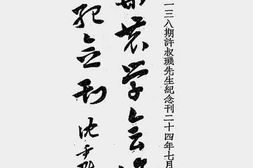 一三八期許叔璣先生紀念刊二十四年七月
農学会
紀念刊 沈